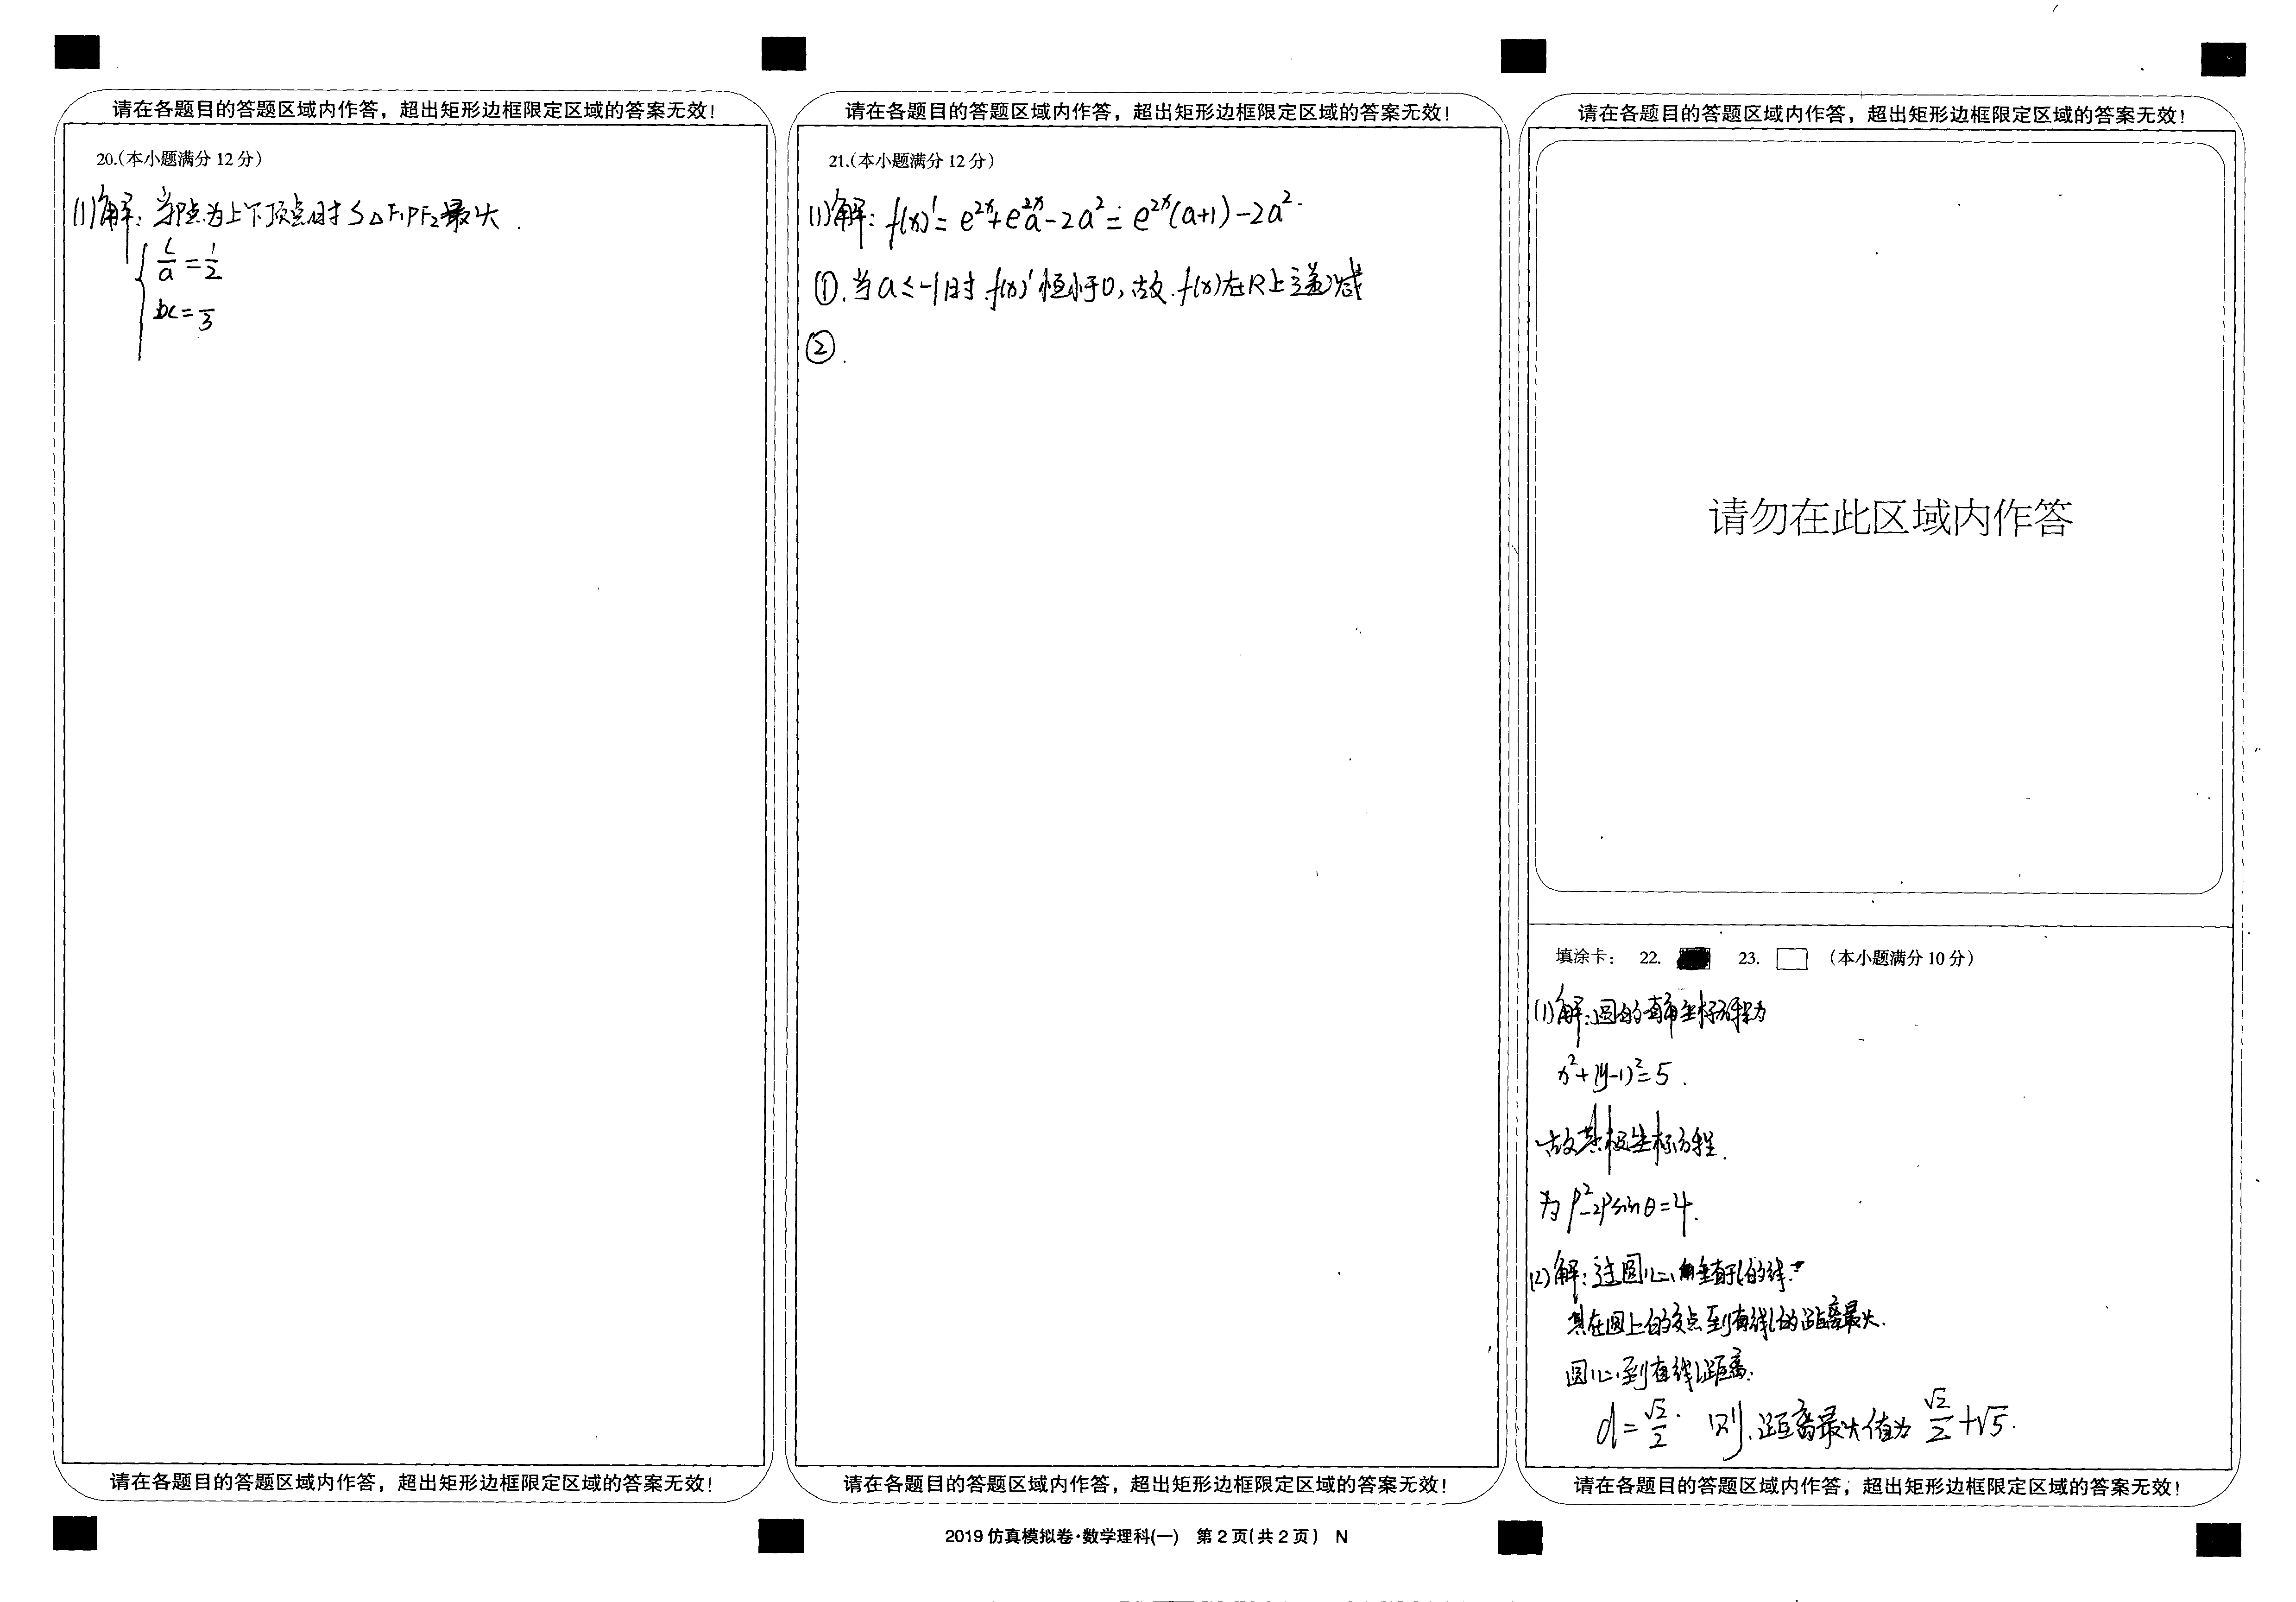 请在各题目的答题区域内作答，超出矩形边框限定区域的答案无效！
20.(本小题满分 12 分)
(1)解：当P点为上下顶点时 S△F₁PF₂最大.
{ c/a = 1/2
bc = √3
请在各题目的答题区域内作答，超出矩形边框限定区域的答案无效！
请在各题目的答题区域内作答，超出矩形边框限定区域的答案无效！
21.(本小题满分 12 分)
(1)解：f(x)' = e^{2x}+e^{2x}a-2a² = e^{2x}(a+1)-2a².
①.当a≤-1时.f(x)'恒小于0，故.f(x)在R上递减
②.
请在各题目的答题区域内作答，超出矩形边框限定区域的答案无效！
2019 仿真模拟卷·数学理科(一) 第 2 页(共 2 页) N
请在各题目的答题区域内作答，超出矩形边框限定区域的答案无效！
请勿在此区域内作答
填涂卡： 22. 23. (本小题满分 10 分)
(1)解：圆的直角坐标方程为
x²+(y-1)²=5.
故其极坐标方程.
为 ρ²-2ρsinθ=4.
(2)解：过圆心作垂直于l的线.
其在圆上的交点到直线l的距离最大.
圆心到直线l距离.
d=√2/2. 则.距离最大值为 √2/2+√5.
请在各题目的答题区域内作答，超出矩形边框限定区域的答案无效！